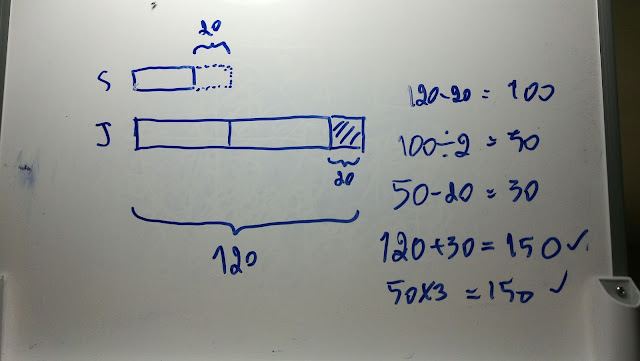 20
S
J
20
120
120-20 = 100
100÷2 = 50
50-20 = 30
120+30 = 150 ✓
50×3 = 150 ✓